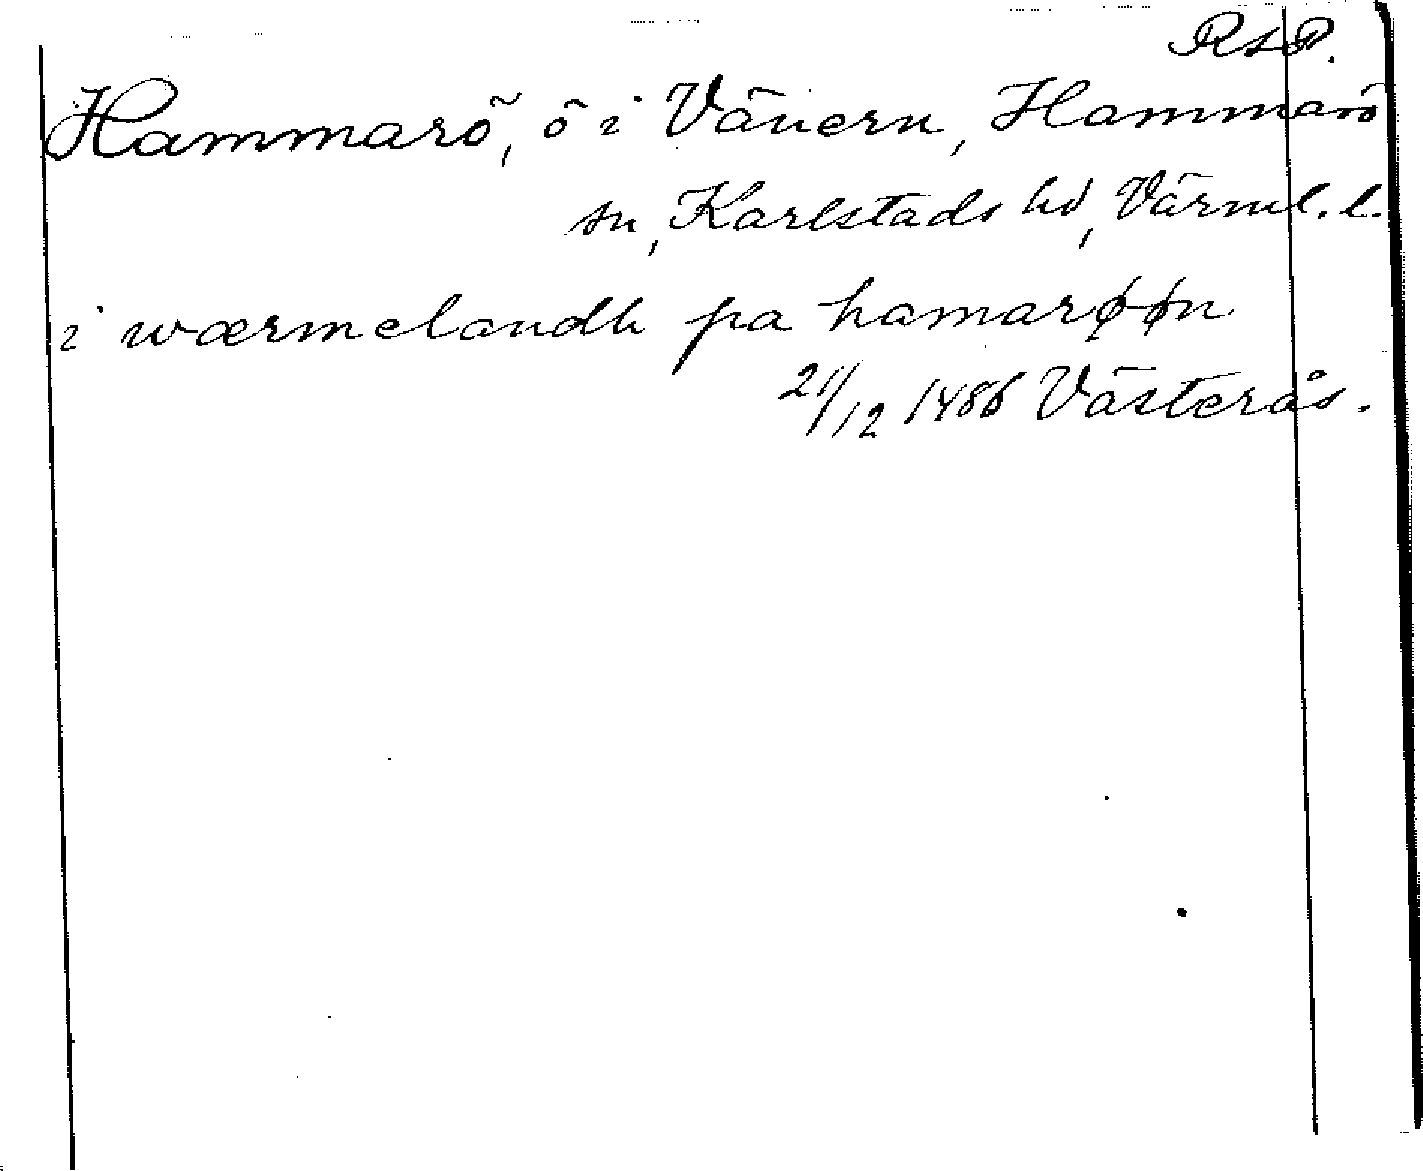 RAP.
Hammarö, ö i Vänern, Hammarö
sn, Karlstads hd, Värml. l.
i wærmelandh pa hamarøøn
21/12 1486 Västerås.